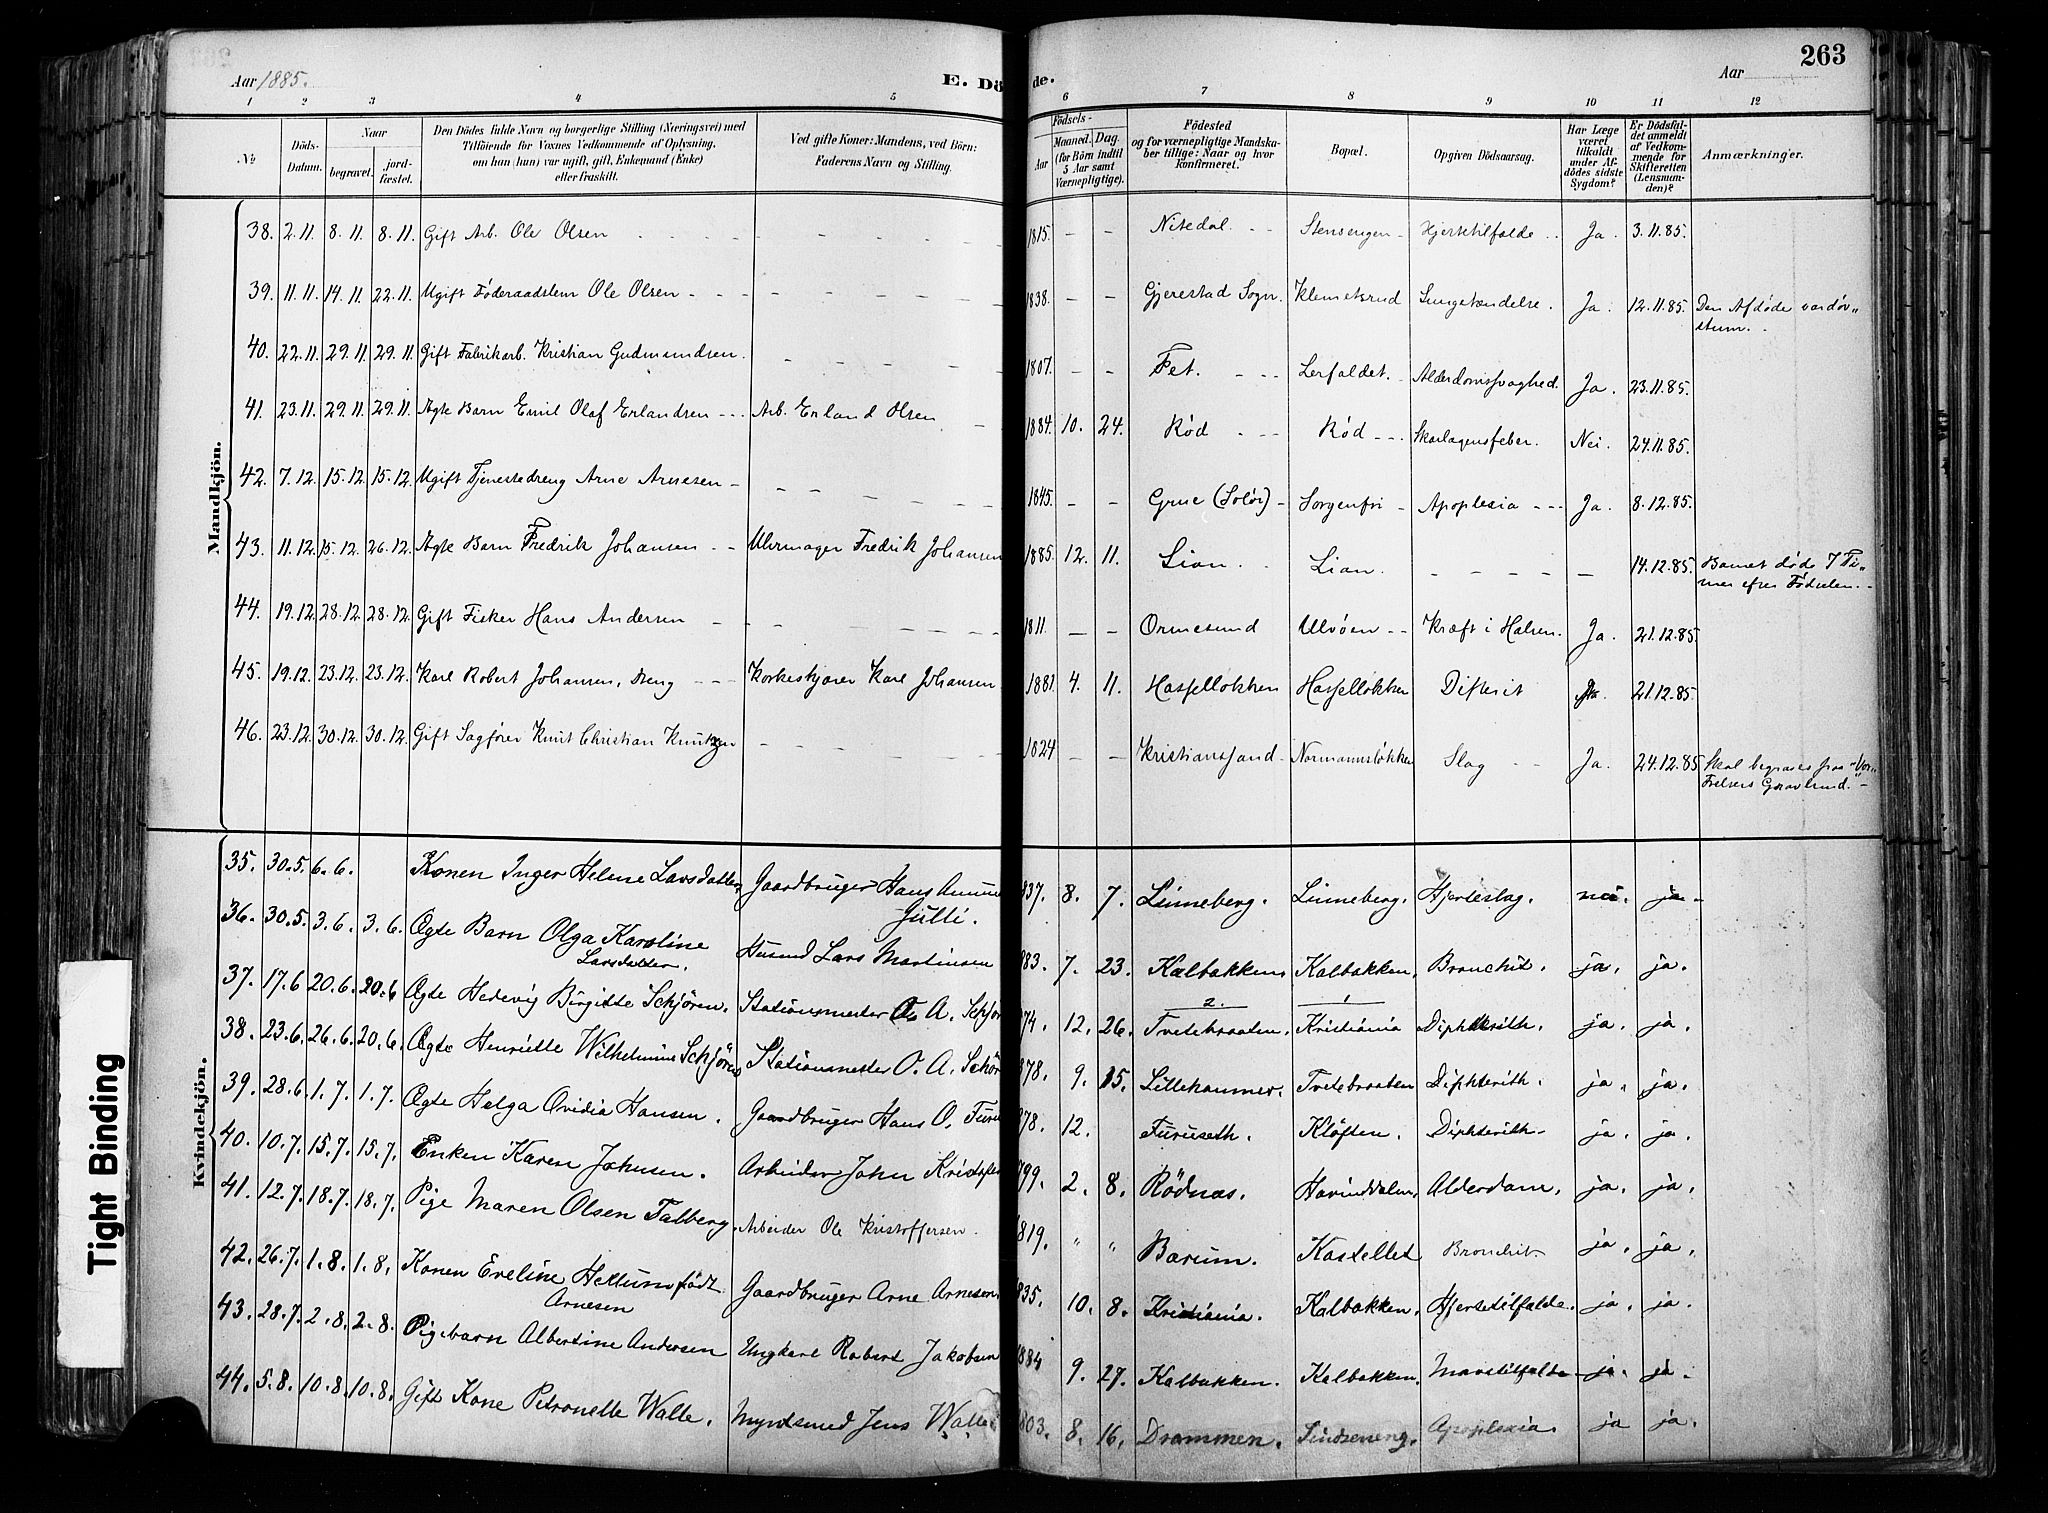 263
Aar 1885.
E. Dö de.
Aar
1 2 3 4 5 6 7 8 9 10 11 12
№
Döds-Datum.
Naar
begravet.
jord-fæstet.
Den Dödes fulde Navn og borgerlige Stilling (Næringsvei) med Tilföiende for Voxnes Vedkommende af Oplysning, om han (hun) var ugift, gift, Enkemand (Enke) eller fraskilt.
Ved gifte Koner: Mandens, ved Börn: Faderens Navn og Stilling.
Födsels-
Aar
Maaned. Dag. (for Börn indtil 5 Aar samt Værnepligtige).
Födested og for værnepligtige Mandskaber tillige: Naar og hvor konfirmeret.
Bopæl.
Opgiven Dödsaarsag.
Har Læge været tilkaldt under Afdödes sidste Sygdom?
Er Dödsfaldet anmeldt af Vedkommende for Skifteretten (Lensmanden)?
Anmærkninger.
Mandkjön.
38. 2.11. 8.11. 8.11. Gift Arb. Ole Olsen 1815. – – Nitedal. Stensengen Hjertetilfælde Ja. 3.11.85.
39. 11.11. 14.11. 22.11. Ugift Føderaadslem Ole Olsen 1838. – – Gjerestad Sogn. Klemetsrud Lungetændelse. Ja. 12.11.85. Den Afdøde var døv„
stum.
40. 22.11. 29.11. 29.11. Gift Fabrikarb. Kristian Gudmundsen. 1807. – – Fet. Lerfaldet. Alderdomssvaghed. Ja. 23.11.85.
41. 23.11. 29.11. 29.11. Ægte Barn Emil Olaf Erlandsen Arb. Erland Olsen 1884. 10. 24. Rød Rød Skarlagensfeber. Nei. 24.11.85.
42. 7.12. 15.12. 15.12. Ugift Tjenestedreng Arne Arnesen 1845. – – Grue (Solør) Sorgenfri Apoplexia Ja. 8.12.85.
43. 11.12. 15.12. 26.12. Ægte Barn Fredrik Johansen Uhrmager Fredrik Johansen 1885. 12. 11. Lian. Lian. – 14.12.85. Barnet døde 7 Ti„
mer efter Fødselen.
44. 19.12. 28.12. 28.12. Gift Fisker Hans Andersen 1811. – – Ormesund Ulvøen Kræft i Halsen. Ja. 21.12.85
45. 19.12. 23.12. 23.12. Karl Robert Johansen, Dreng Korkeskjærer Karl Johansen 1881. 4. 11. Hasselløkken Hasselløkken Difterit 21.12.85
46. 23.12. 30.12. 30.12. Gift Sagfører Knut Christian Knutzen 1824 – – Kristianssand Normannsløkken Slag Ja. 24.12.85 Skal begraves paa "Vor„
Frelsers Gravlund."
Kvindekjön.
35. 30.5. 6.6. Konen Inger Helene Larsdatter, Gaardbruger Hans Amun 837. 8. 7. Linneberg. Linneberg. Hjerteslag. nei. ja.
Julli.
36. 30.5. 3.6. 3.6. Ægte Barn Olga Karoline Husmd Lars Martinsen 883. 7. 23. Kalbakken Kalbakken. Bronchit. ja. ja.
Larsdatter.
37. 17.6 20.6. 20.6 Ægte Hedevig Birgitte Schjören. Stationsmester O. A. Schjør 874. 12. 26. Tvetebraaten. Kristiania Diphterith. ja. ja.
2. 1
38. 23.6. 26.6. 20.6. Ægte Henriette Wilhelmine Schjören Stationsmester O. A. Schör 878. 9. 15. Lillehammer. Tvetebraaten Diphterith. ja. ja.
39. 28.6 1.7. 1.7. Ægte Helga Ovidia Hansen. Gaardbruger Hans O. Furu 878. 12. Furuseth. Kløften. Diphterith ja. ja.
40. 10.7. 15.7. 15.7. Enken Karen Johnsen. Arbeider John Kristofe 799. 2. 8. Rødnæs. Havinddalen, Alderdom. ja. ja.
41. 12.7. 18.7. 18.7. Pige Maren Olsen Falberg. Arbeider Ole Kristoffersen. 819. " " Bærum. Kastellet Bronchit. ja. ja.
42. 26.7. 1.8. 1.8. Konen Eveline Hellum födt Gaardbruger Arne Arnesen. 835. 10. 8. Kristiania. Kalbakken. Hjertetilfælde. ja. ja.
Arnesen
43. 28.7. 2.8. 2.8. Pigebarn Albertine Andersen Ungkarl Robert Jakobsen 1884 9. 27. Kalbakken. Kalbakken. Mavetilfælde ja. ja.
44. 5.8. 10.8. 10.8. Gift Kone Petronelle Walle. Myndsmed Jens Walle 803. 8. 16. Drammen. Lindseneng. Apoplexia. ja ja.
Tight Binding